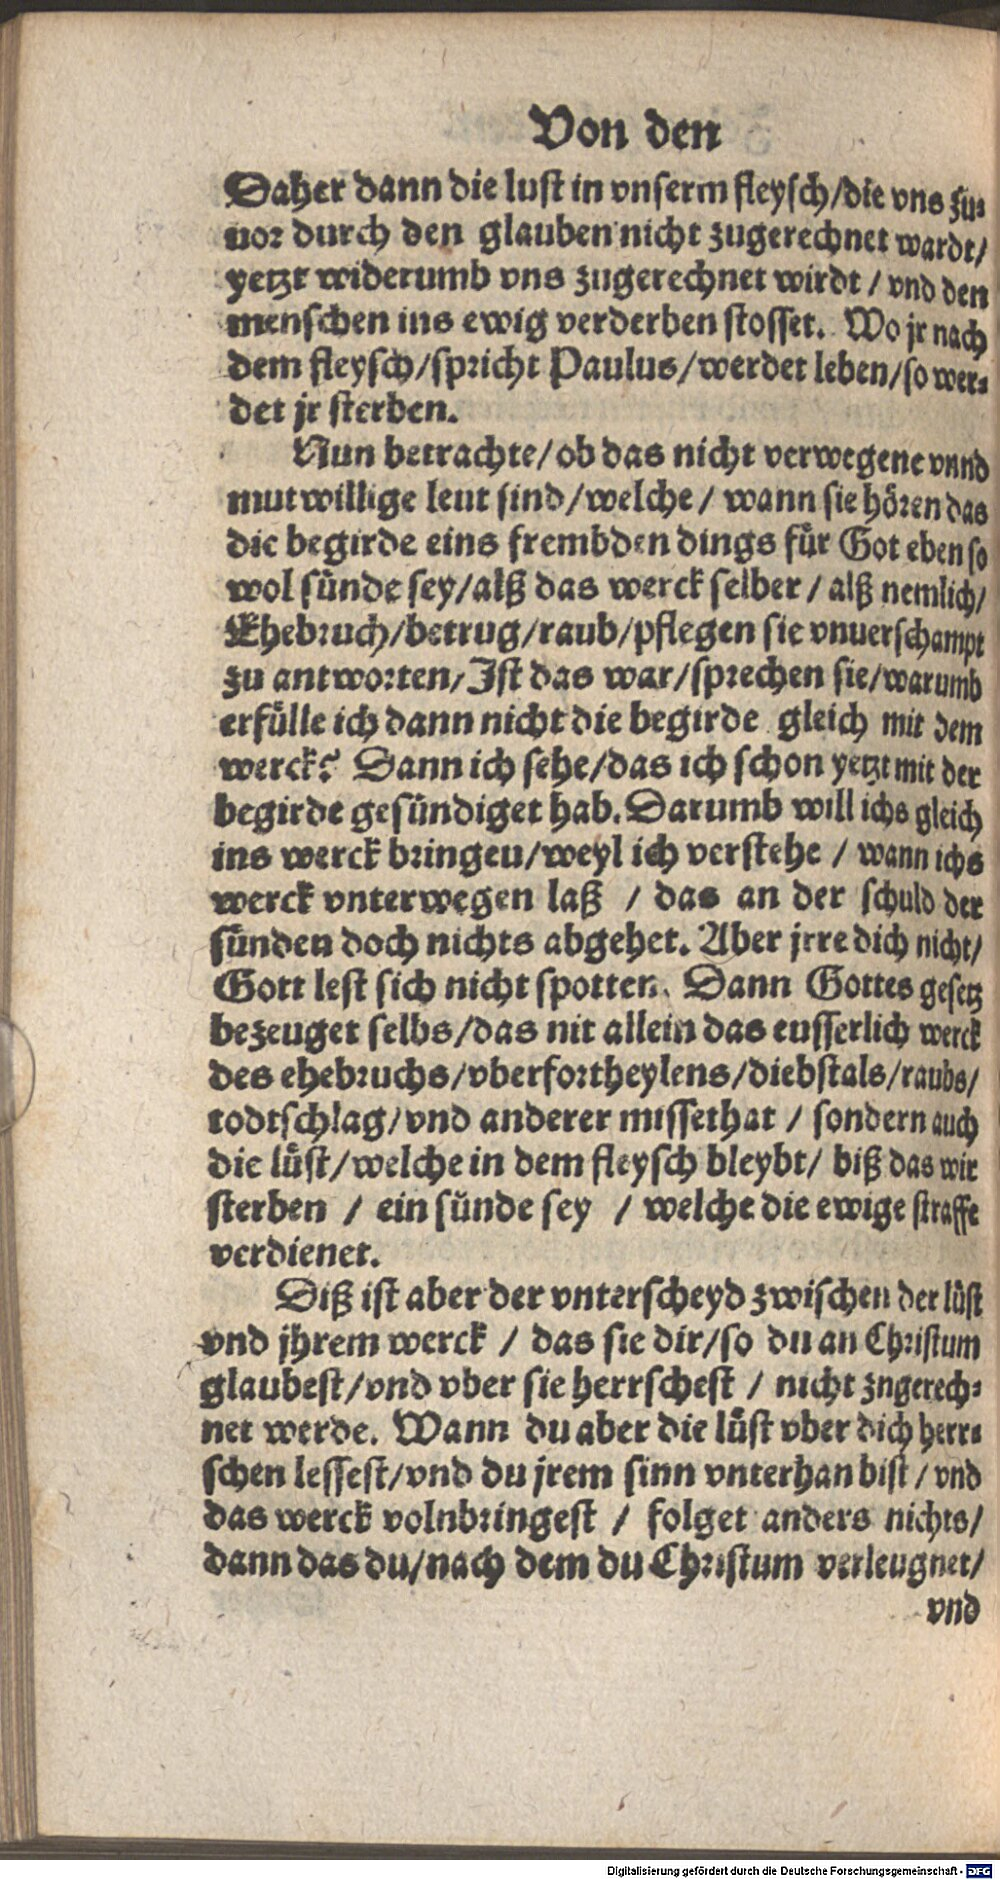 Von den
Daher dann die lust in vnserm fleysch/die vns zu-
uor durch den glauben nicht zugerechnet wardt/
yetzt widerumb vns zugerechnet wirdt / vnd den
menschen ins ewig verderben stosset. Wo jr nach
dem fleysch/spricht Paulus/werdet leben/so wer-
det jr sterben.
Nun betrachte/ob das nicht verwegene vnnd
mutwillige leut sind/welche / wann sie hören das
die begirde eins frembden dings für Got eben so
wol sünde sey/alß das werck selber / alß nemlich/
Ehebruch/betrug/raub/pflegen sie vnuerschampt
zu antworten/Ist das war/sprechen sie/warumb
erfülle ich dann nicht die begirde gleich mit dem
werck? Dann ich sehe/das ich schon yetzt mit der
begirde gesündiget hab. Darumb will ichs gleich
ins werck bringeu/weyl ich verstehe / wann ichs
werck vnterwegen laß / das an der schuld der
sünden doch nichts abgehet. Aber jrre dich nicht/
Gott lest sich nicht spotten. Dann Gottes gesetz
bezeuget selbs/das nit allein das eusserlich werck
des ehebruchs/vberfortheylens/diebstals/raubs/
todtschlag/vnd anderer missethat / sondern auch
die lüst/welche in dem fleysch bleybt/ biß das wir
sterben / ein sünde sey / welche die ewige straffe
verdienet.
Diß ist aber der vnterscheyd zwischen der lüst
vnd jhrem werck / das sie dir/so du an Christum
glaubest/vnd vber sie herrschest / nicht zngerech-
net werde. Wann du aber die lüst vber dich herr-
schen lessest/vnd du jrem sinn vnterhan bist / vnd
das werck volnbringest / folget anders nichts/
dann das du/nach dem du Christum verleugnet/
vnd
Digitalisierung gefördert durch die Deutsche Forschungsgemeinschaft - DFG